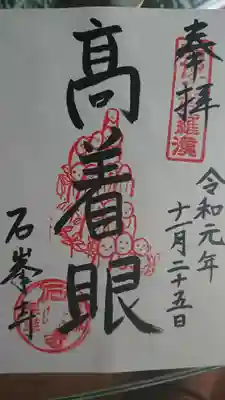 奉拝
令和元年
十一月二十五日
高着眼
石峯寺